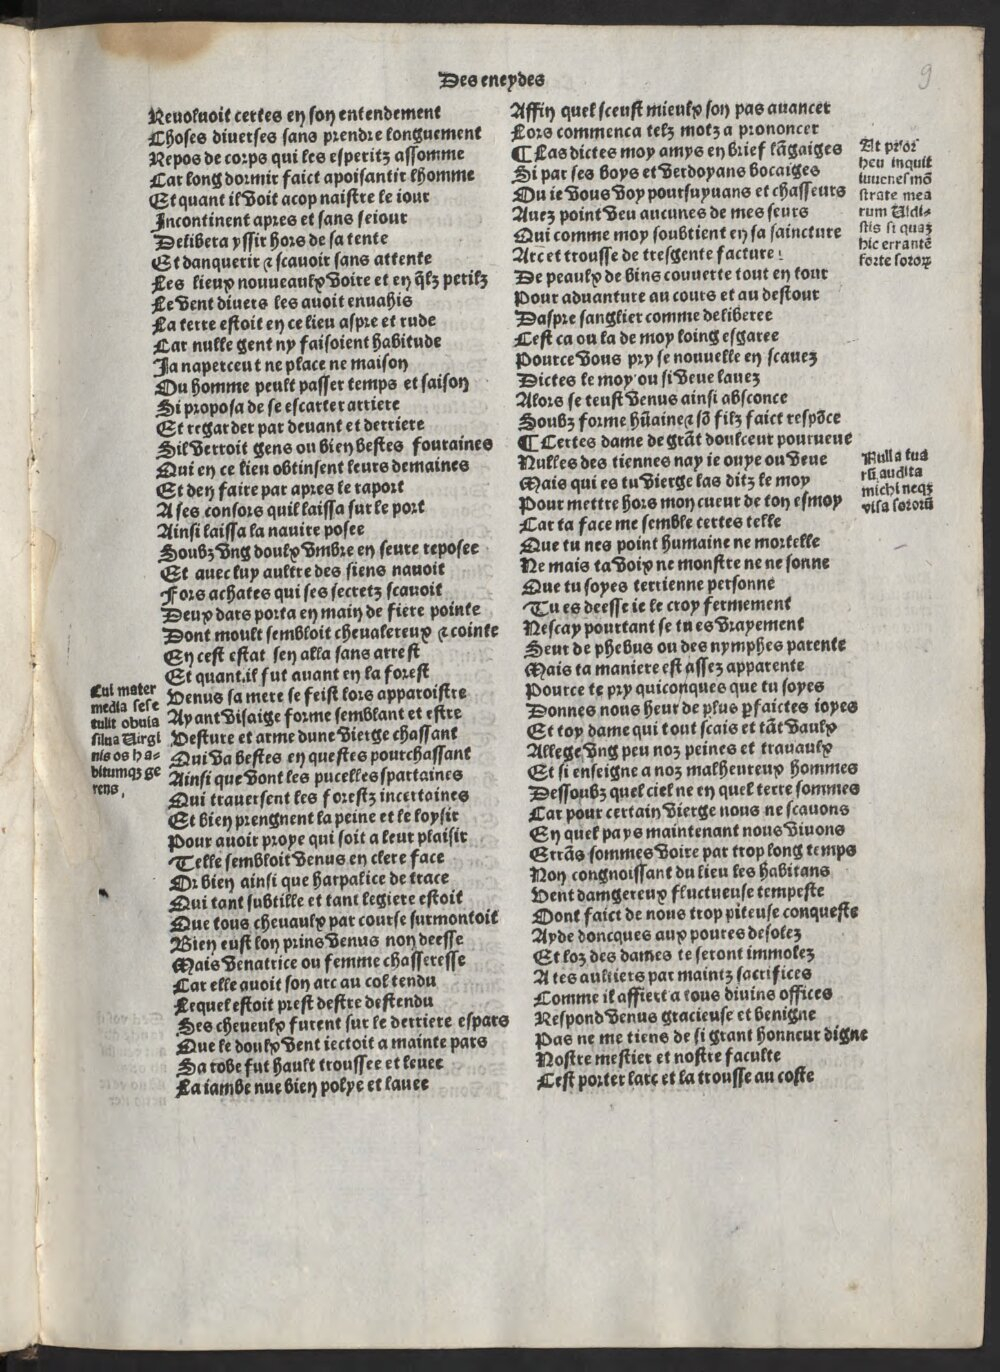 Des eneydes
9
Revoluoit certes en son entendement
Choses diuerses sans prendre longuement
Repos de corps qui les esperitz assomme
Car long dormir faict apoisantir lhomme
Et quant il voit acop naistre le iour
Incontinent apres et sans seiour
Delibera yssir hors de sa tente
Et danquerir ⁊ scauoir sans attente
Les lieux nouueaulx voire et en q̃lz perilz
Le vent diuers les auoit enuahis
La terre estoit en ce lieu aspre et rude
Car nulle gent ny faisoient habitude
Ja naperceut ne place ne maison
Ou homme peult passer temps et saison
Si proposa de se escarter arriere
Et regarder par deuant et derriere
Sil verroit gens ou bien bestes foutaines
Qui en ce lieu obtinsent leurs demaines
Et den faire par apres le raport
A ses consors quil laissa sur le port
Ainsi laissa la nauire posee
Soubz vng doulx vmbre en seure reposee
Et auec luy aultre des siens nauoit
Fors achates qui ses secretz scauoit
Deux dars porta en main de fiere pointe
Dont moult sembloit cheualereux ⁊ cointe
En cest estat sen alla sans arrest
Et quant il fut auant en la forest
Venus sa mere se feist lors apparoistre
Ayant visaige forme semblant et estre
Vesture et arme dune vierge chassant
Qui va bestes en questes pourchassant
Ainsi que vont les pucelles spartaines
Qui trauersent les forestz incertaines
Et bien prengnent la peine et le loysir
Pour auoir proye qui soit a leur plaisir
Telle sembloit venus en clere face
Or bien ainsi que harpalice de trace
Qui tant subtille et tant legiere estoit
Que tous cheuaulx par course surmontoit
Bien eust lon prins venus non deesse
Mais venatrice ou femme chasseresse
Car elle auoit son arc au col tendu
Lequel estoit prest destre destendu
Ses cheueulx furent sur le derriere espars
Que le doulx vent iectoit a mainte pars
Sa robe fut hault troussee et leuee
La iambe nue bien polye et lauee
Cui mater
media sese
tulit obuia
silua Uirgi
nis os ha-
bitumqꝫ ge
rens,
Affin quel sceust mieulx son pas auancer
Lors commenca telz motz a prononcer
¶ Las dictes moy amys en brief lãgaiges
Si par ses boys et verdoyans bocaiges
Ou ie vous voy poursuyuans et chasseurs
Auez point veu aucunes de mes seurs
Qui comme moy soubtient en sa saincture
Arc et trousse de tresgente facture
De peaulx de bins couuerte tout en tour
Pour aduanture au cours et au destour
Daspre sanglier comme deliberee
Cest ca ou la de moy loing esgaree
Pource vous pry se nouuelle en scauez
Dictes le moy ou si veue lauez
Alors se teust venus ainsi absconce
Soubz forme hũaine⁊ sõ filz faict respõce
¶ Certes dame de grãt doulceur pourueue
Nulles des tiennes nay ie ouye ou veue
Mais qui es tu vierge las ditz le moy
Pour mettre hors mon cueur de ton esmoy
Car ta face me semble certes telle
Que tu nes point humaine ne mortelle
Ne mais ta voix ne monstre ne ne sonne
Que tu soyes terrienne personne
Tu es deesse ie le croy fermement
Nescay pourtant se tu es vrayement
Seur de phebus ou des nymphes parente
Mais ta maniere est assez apparente
Pource te pry quiconques que tu soyes
Donnes nous heur de plus ꝑfaictes ioyes
Et toy dame qui tout scais et tãt vaulx
Allege vng peu noz peines et trauaulx
Et si enseigne a noz malheureux hommes
Dessoubz quel ciel ne en quel terre sommes
Car pour certain vierge nous ne scauons
En quel pays maintenant nous viuons
Errãs sommes voire par trop long temps
Non congnoissant du lieu les habitans
Vent damgereux fluctueuse tempeste
Dont faict de nous trop piteuse conqueste
Ayde doncques aux poures desolez
Et loz des dames te seront immolez
A tes aultiers par maintz sacrifices
Comme il affiert a tous diuins offices
Respond venus gracieuse et benigne
Pas ne me tiens de si grant honneur digne
Nostre mestier et nostre faculte
Cest porter larc et la trousse au coste
At prior
heu inquit
iuuenes mõ
strate mea
rum Uidi-
stis si quaꝫ
hic errantẽ
forte sororꝫ
Nulla tua
rũ audita
michi neqꝫ
visa sororũ